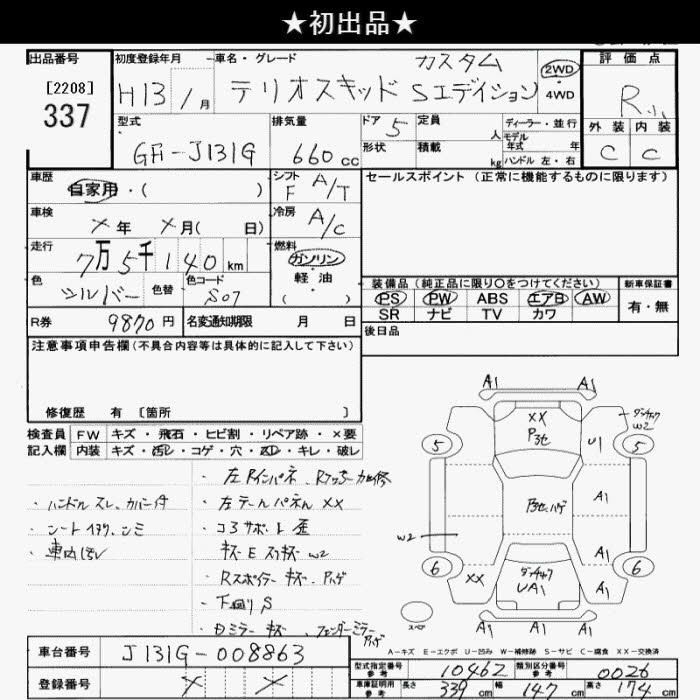 ★初出品★
出品番号
[2208]
337
初度登録年月
H13 / 月
車名・グレード
カスタム
テリオスキッド Sエディション
2WD
4WD
評価点
R
外装 内装
C C
型式
GH-J131G
排気量
660 cc
ドア 5
定員 人
ディーラー・並行
モデル
年式 年
形状
積載 kg
ハンドル 左・右
車歴
自家用・( )
シフト
F A/T
セールスポイント (正常に機能するものに限ります)
車検
×年 ×月( 日)
冷房
A/C
走行
7万5千140km
燃料
ガソリン
軽油
( )
色
シルバー
色替
色コード
S07
装備品 (純正品に限り○をつけてください)
新車保証書
PS PW ABS エアB AW
有・無
SR ナビ TV カワ
R券 9870円
名変通知期限 月 日
後日品
注意事項申告欄(不具合内容等は具体的に記入して下さい)
修復歴 有 [箇所 ]
検査員 FW キズ・飛石・ヒビ割・リペア跡・×要
記入欄 内装 キズ・汚レ・コゲ・穴・スレ・キレ・破レ
・ハンドル スレ、カバー付
・シート
・車内
・左テールパネル XX
・コアサポート 歪
キズ E W2
・Rスポイラー キズ
・下回り S
A1 A1
XX
Pうセ
W2
5 U1 5
A1
W2
6 A1 6
XX A1
UA1
A1 A1 A1
A-キズ E-エクボ U-凹ミ W-補修跡 S-サビ C-腐食 XX-交換済
車台番号 J131G-008863
登録番号 × ×
型式指定番号
参考
10462
類別区分番号
参考
0026
車庫証明用
参考
長さ 339cm 幅 147cm 高さ 174cm